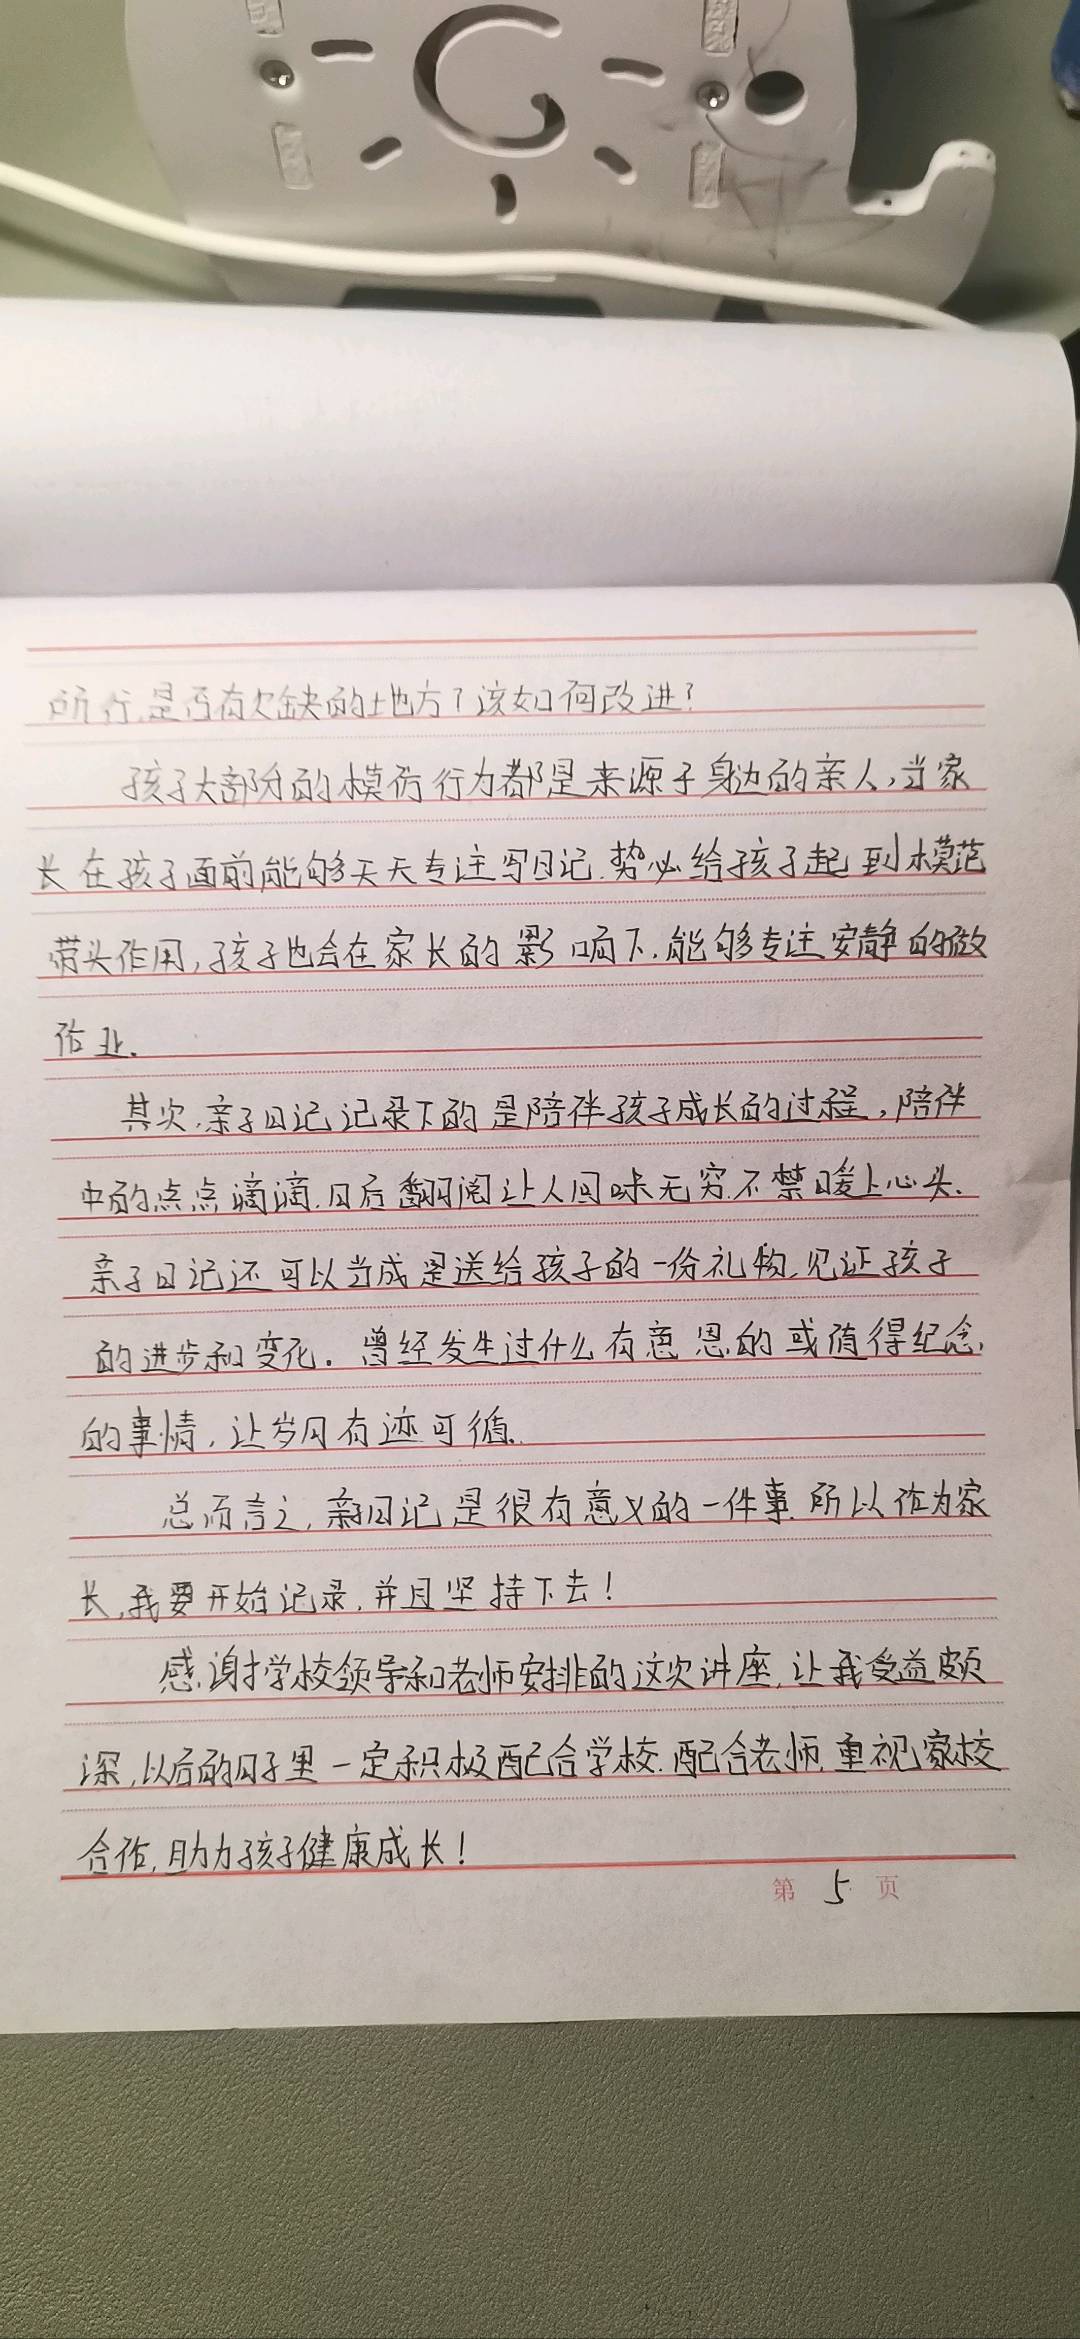 所行,是否有欠缺的地方?该如何改进?
孩子大部份的模仿行为都是来源于身边的亲人,当家
长在孩子面前能够天天专注写日记.势必给孩子起到模范
带头作用,孩子也会在家长的影响下.能够专注安静的做
作业.
其次,亲子日记记录下的是陪伴孩子成长的过程,陪伴
中的点点滴滴.日后翻阅让人回味无穷.不禁暖上心头.
亲子日记还可以当成是送给孩子的一份礼物,见证孩子
的进步和变化。曾经发生过什么有意思的或值得纪念,
的事情,让岁月有迹可循.
总而言之,亲子日记是很有意义的一件事.所以作为家
长,我要开始记录,并且坚持下去!
感谢学校领导和老师安排的这次讲座,让我受益颇
深,以后的日子里一定积极配合学校.配合老师,重视家校
合作,助力孩子健康成长!
第 5 页